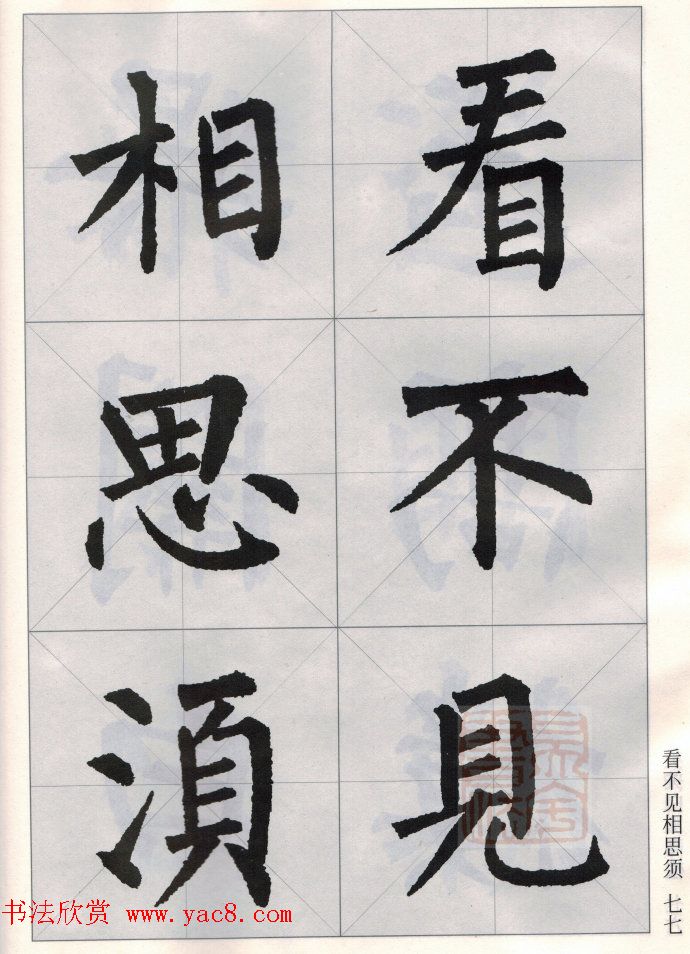 看不見
相思湏
看不见相思须 七七
书法欣赏 www.yac8.com